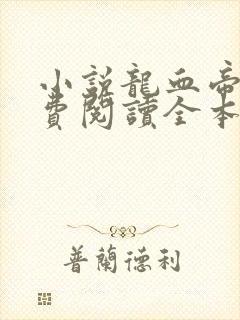 小説龍血帝
費閱讀全本
普蘭德利